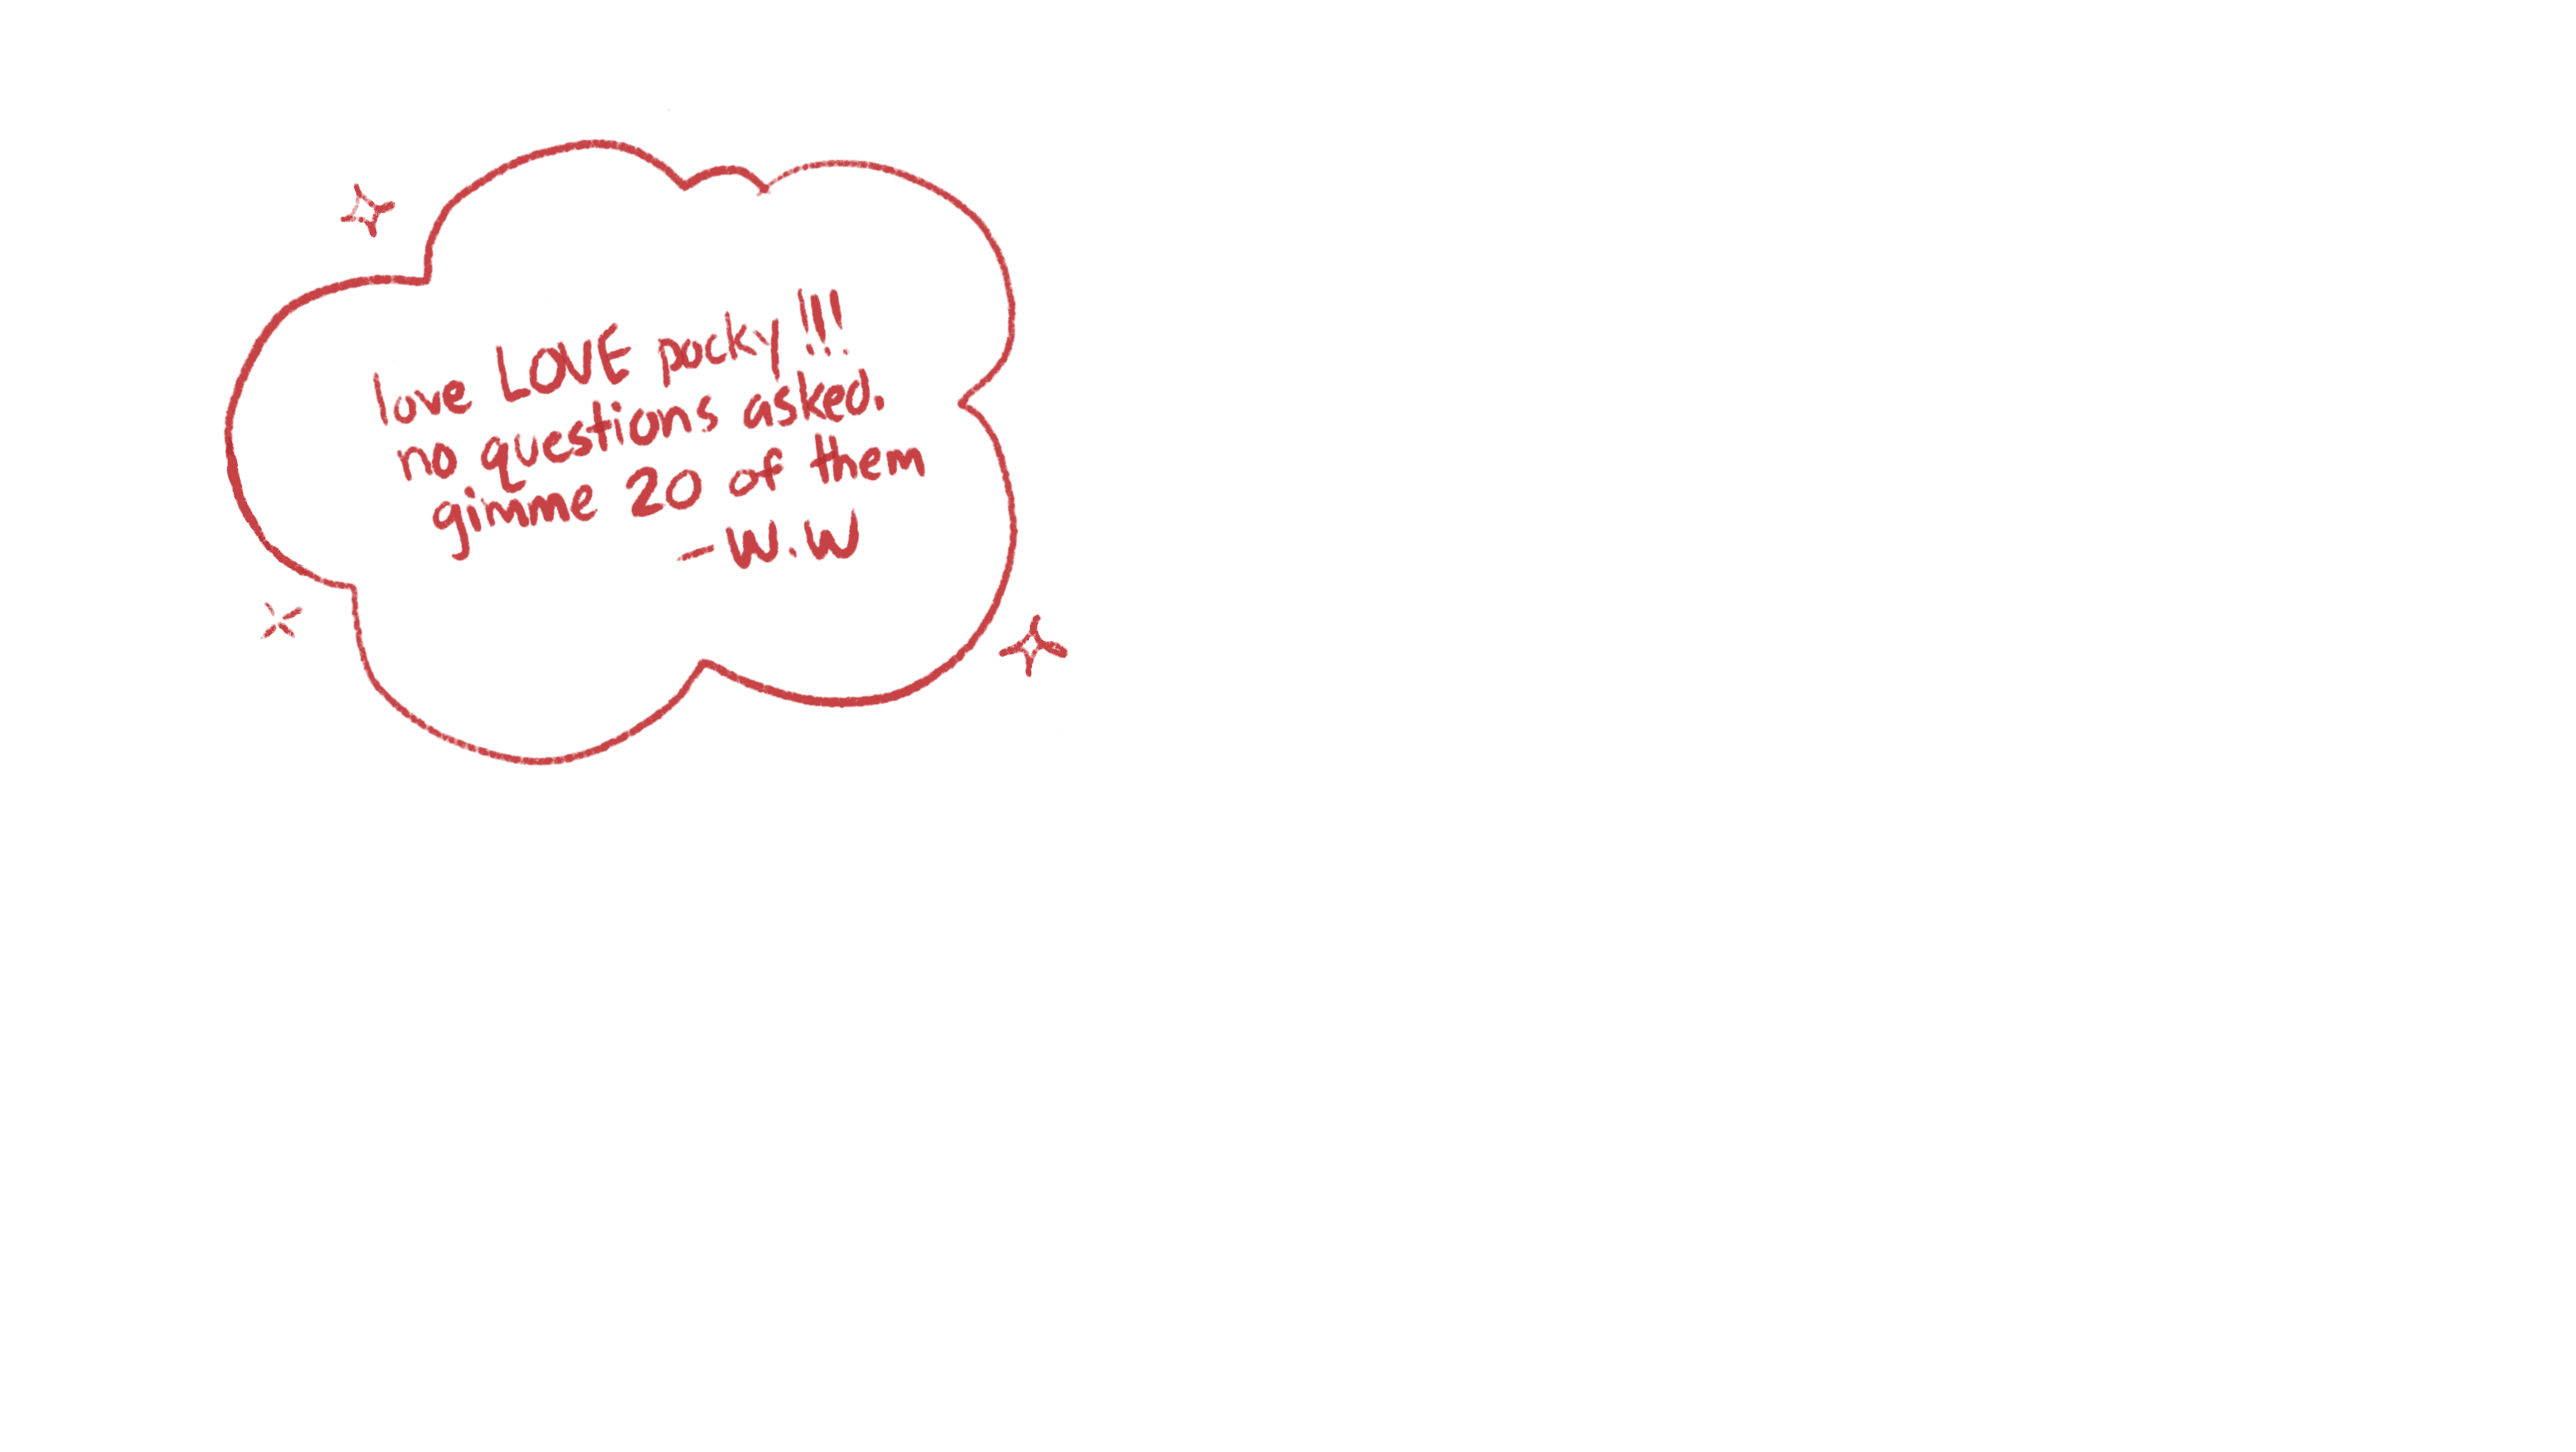 love LOVE pocky!!!
no questions asked.
gimme 20 of them
-W.W